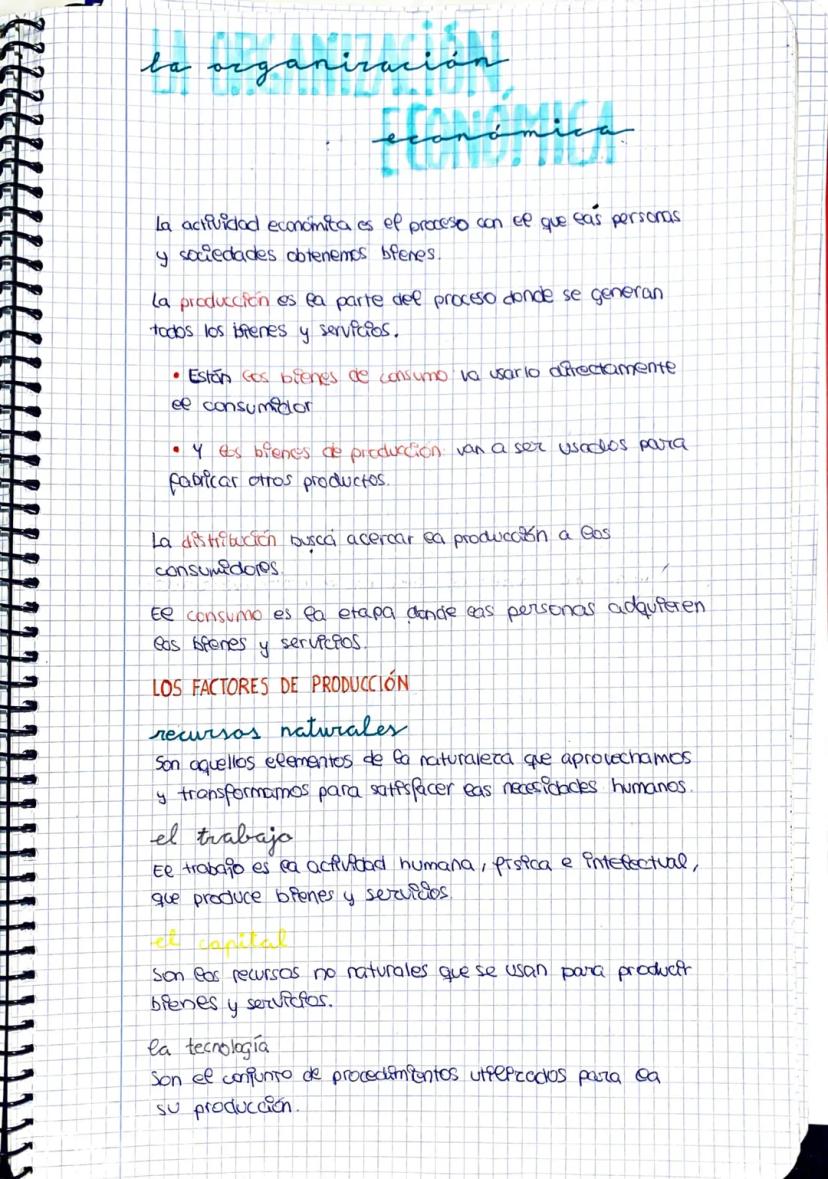 la organización
económica
La actividad económica es el proceso con el que las personas
y sociedades obtenemos bienes.
La producción es la parte del proceso donde se generan
todos los bienes y servicios.
• Están los bienes de consumo va usarlo directamente
el consumidor
• Y los bienes de producción: van a ser usados para
fabricar otros productos.
La distribución busca acercar la producción a los
consumidores.
El consumo es la etapa donde las personas adquieren
los bienes y servicios.
LOS FACTORES DE PRODUCCIÓN
recursos naturales
Son aquellos elementos de la naturaleza que aprovechamos
y transformamos para satisfacer las necesidades humanos.
el trabajo
El trabajo es la actividad humana, física e intelectual,
que produce bienes y servicios.
el capital
Son los recursos no naturales que se usan para producir
bienes y servicios.
la tecnología
Son el conjunto de procedimientos utilizados para la
su producción.